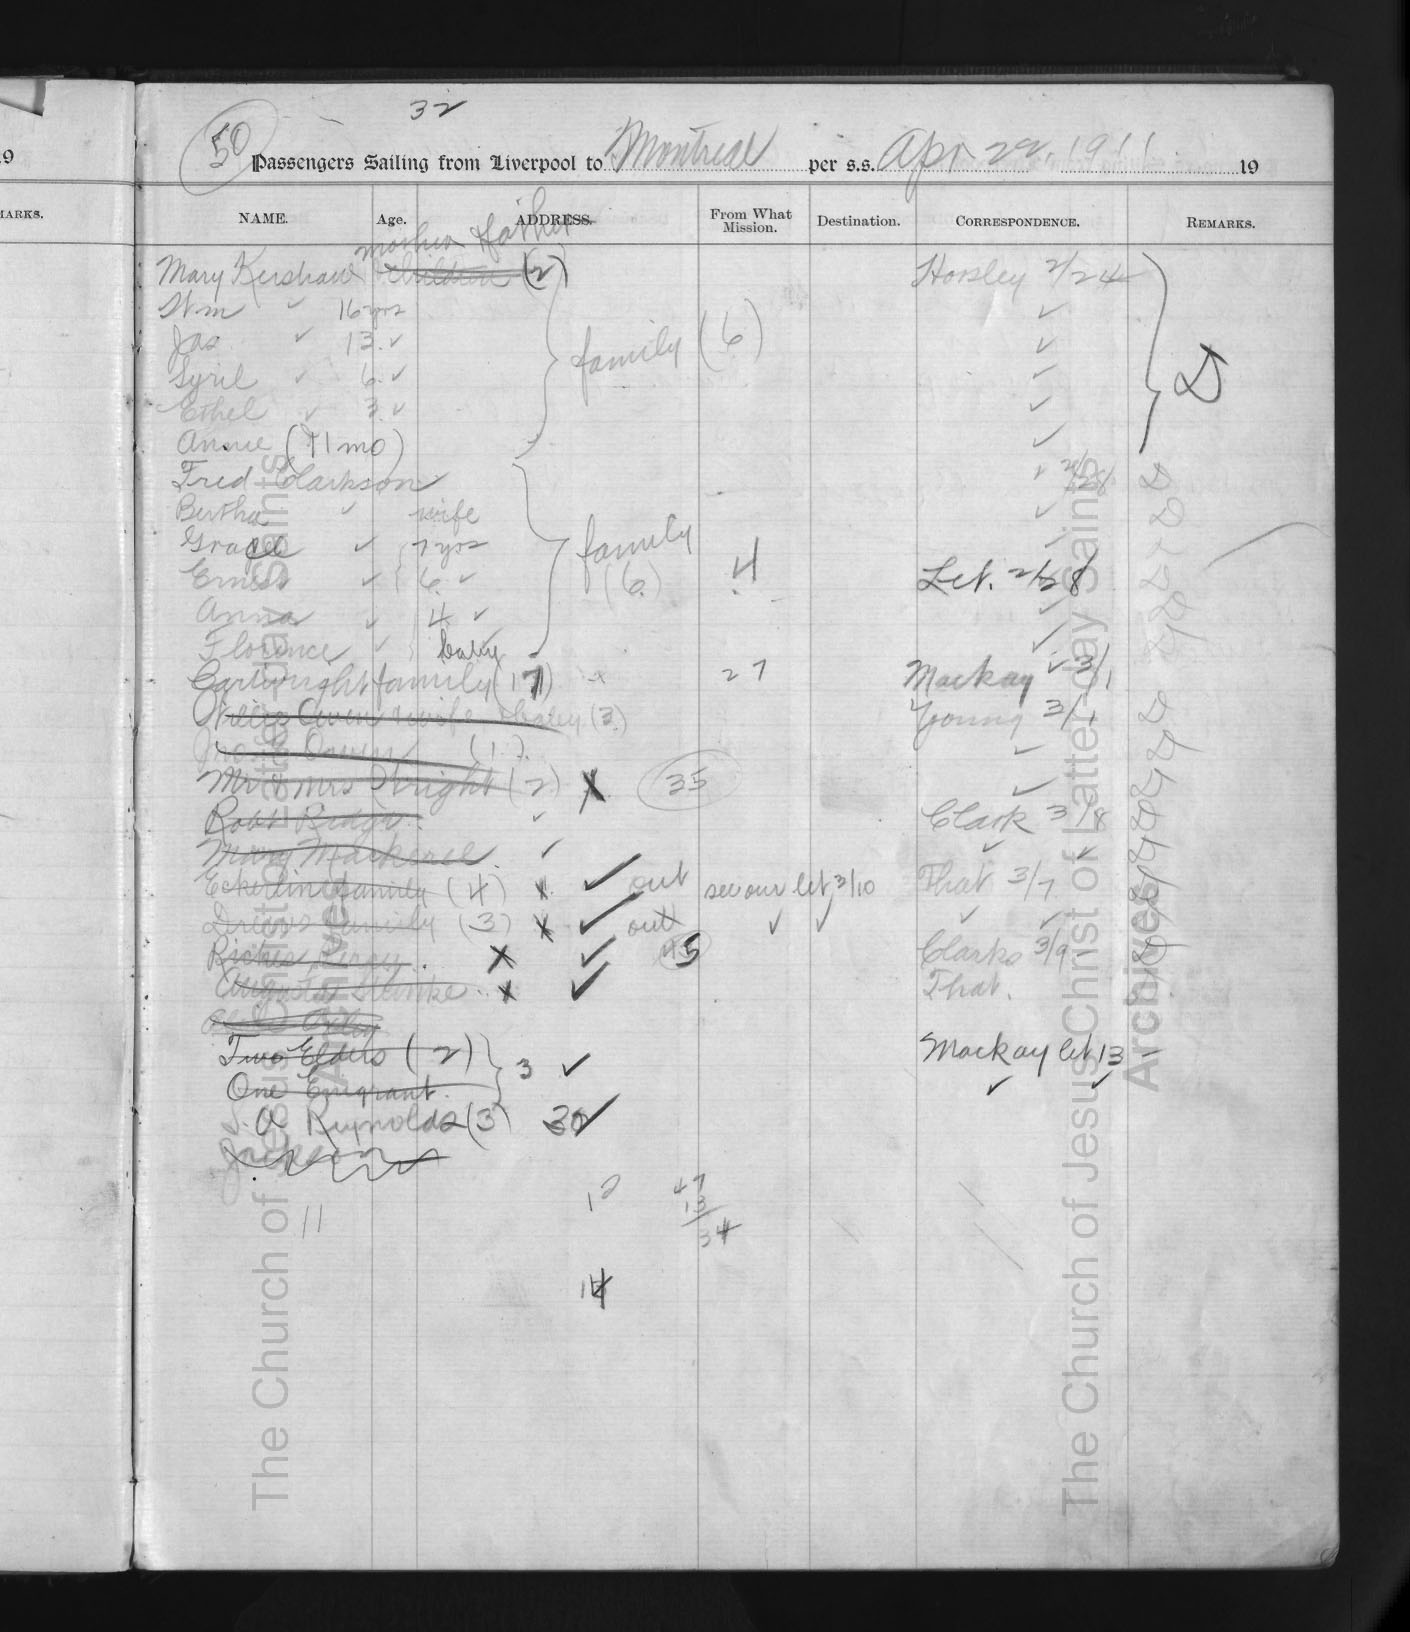 9
MARKS.
32
50
Passengers Sailing from Liverpool to Montreal per s.s. Apr 22, 1911 19
NAME. Age. ADDRESS. From What Mission. Destination. CORRESPONDENCE. REMARKS.
mother father
Mary Kershaw children (2) Horsley 2/24
Wm ✓ 16 yrs ✓
Jas ✓ 13 ✓ family (6) ✓ D
Syril ✓ 6 ✓ ✓
Ethel ✓ 3 ✓ ✓
Annie (11 mo) ✓
Fred Clarkson ✓ ✓ 2/28 D
Bertha ✓ wife ✓ D
Grace ✓ 7 yrs family ✓
Ernest ✓ 6 ✓ (6) 4 Let. 2/28
Anna ✓ 4 ✓ ✓
Florence ✓ baby ✓
Cartwright family (7) 27 Mackay ✓ 3/1
Willis Owen wife & baby (3) Young 3/1
Owen (1) ✓
Mr & Mrs Wright (2) X 35 ✓
Robt Ridge ✓ Clark 3/8
Mary Mackerel ✓ ✓ ✓
Eckerline family (4) x ✓ out see our let 3/10 That 3/7
family (3) x ✓ out ✓ ✓ ✓ ✓
X ✓ 45 Clarks 3/9
Augusta x ✓ That.
Two Elders (2) 3 ✓ Mackay let 13
One Emigrant ✓ ✓
S. A. Reynolds (3) 30 ✓
Jackson
12 47
11 13
34
14
The Church of Jesus Christ of Latter-day Saints
Archives
The Church of Jesus Christ of Latter-day Saints
Archives